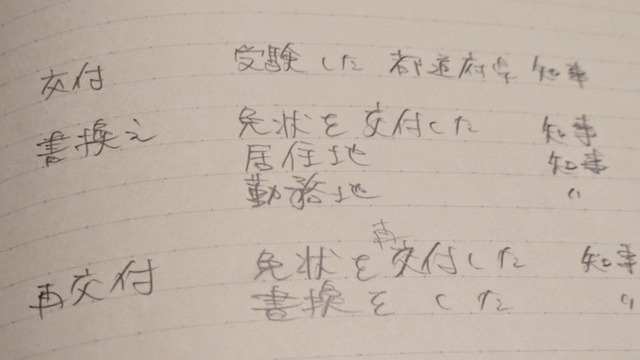 交付 受験した 都道府県 知事
書換え 免状を交付した 知事
居住地 知事
勤務地 〃
再交付 免状を再交付した 知事
書換をした 〃